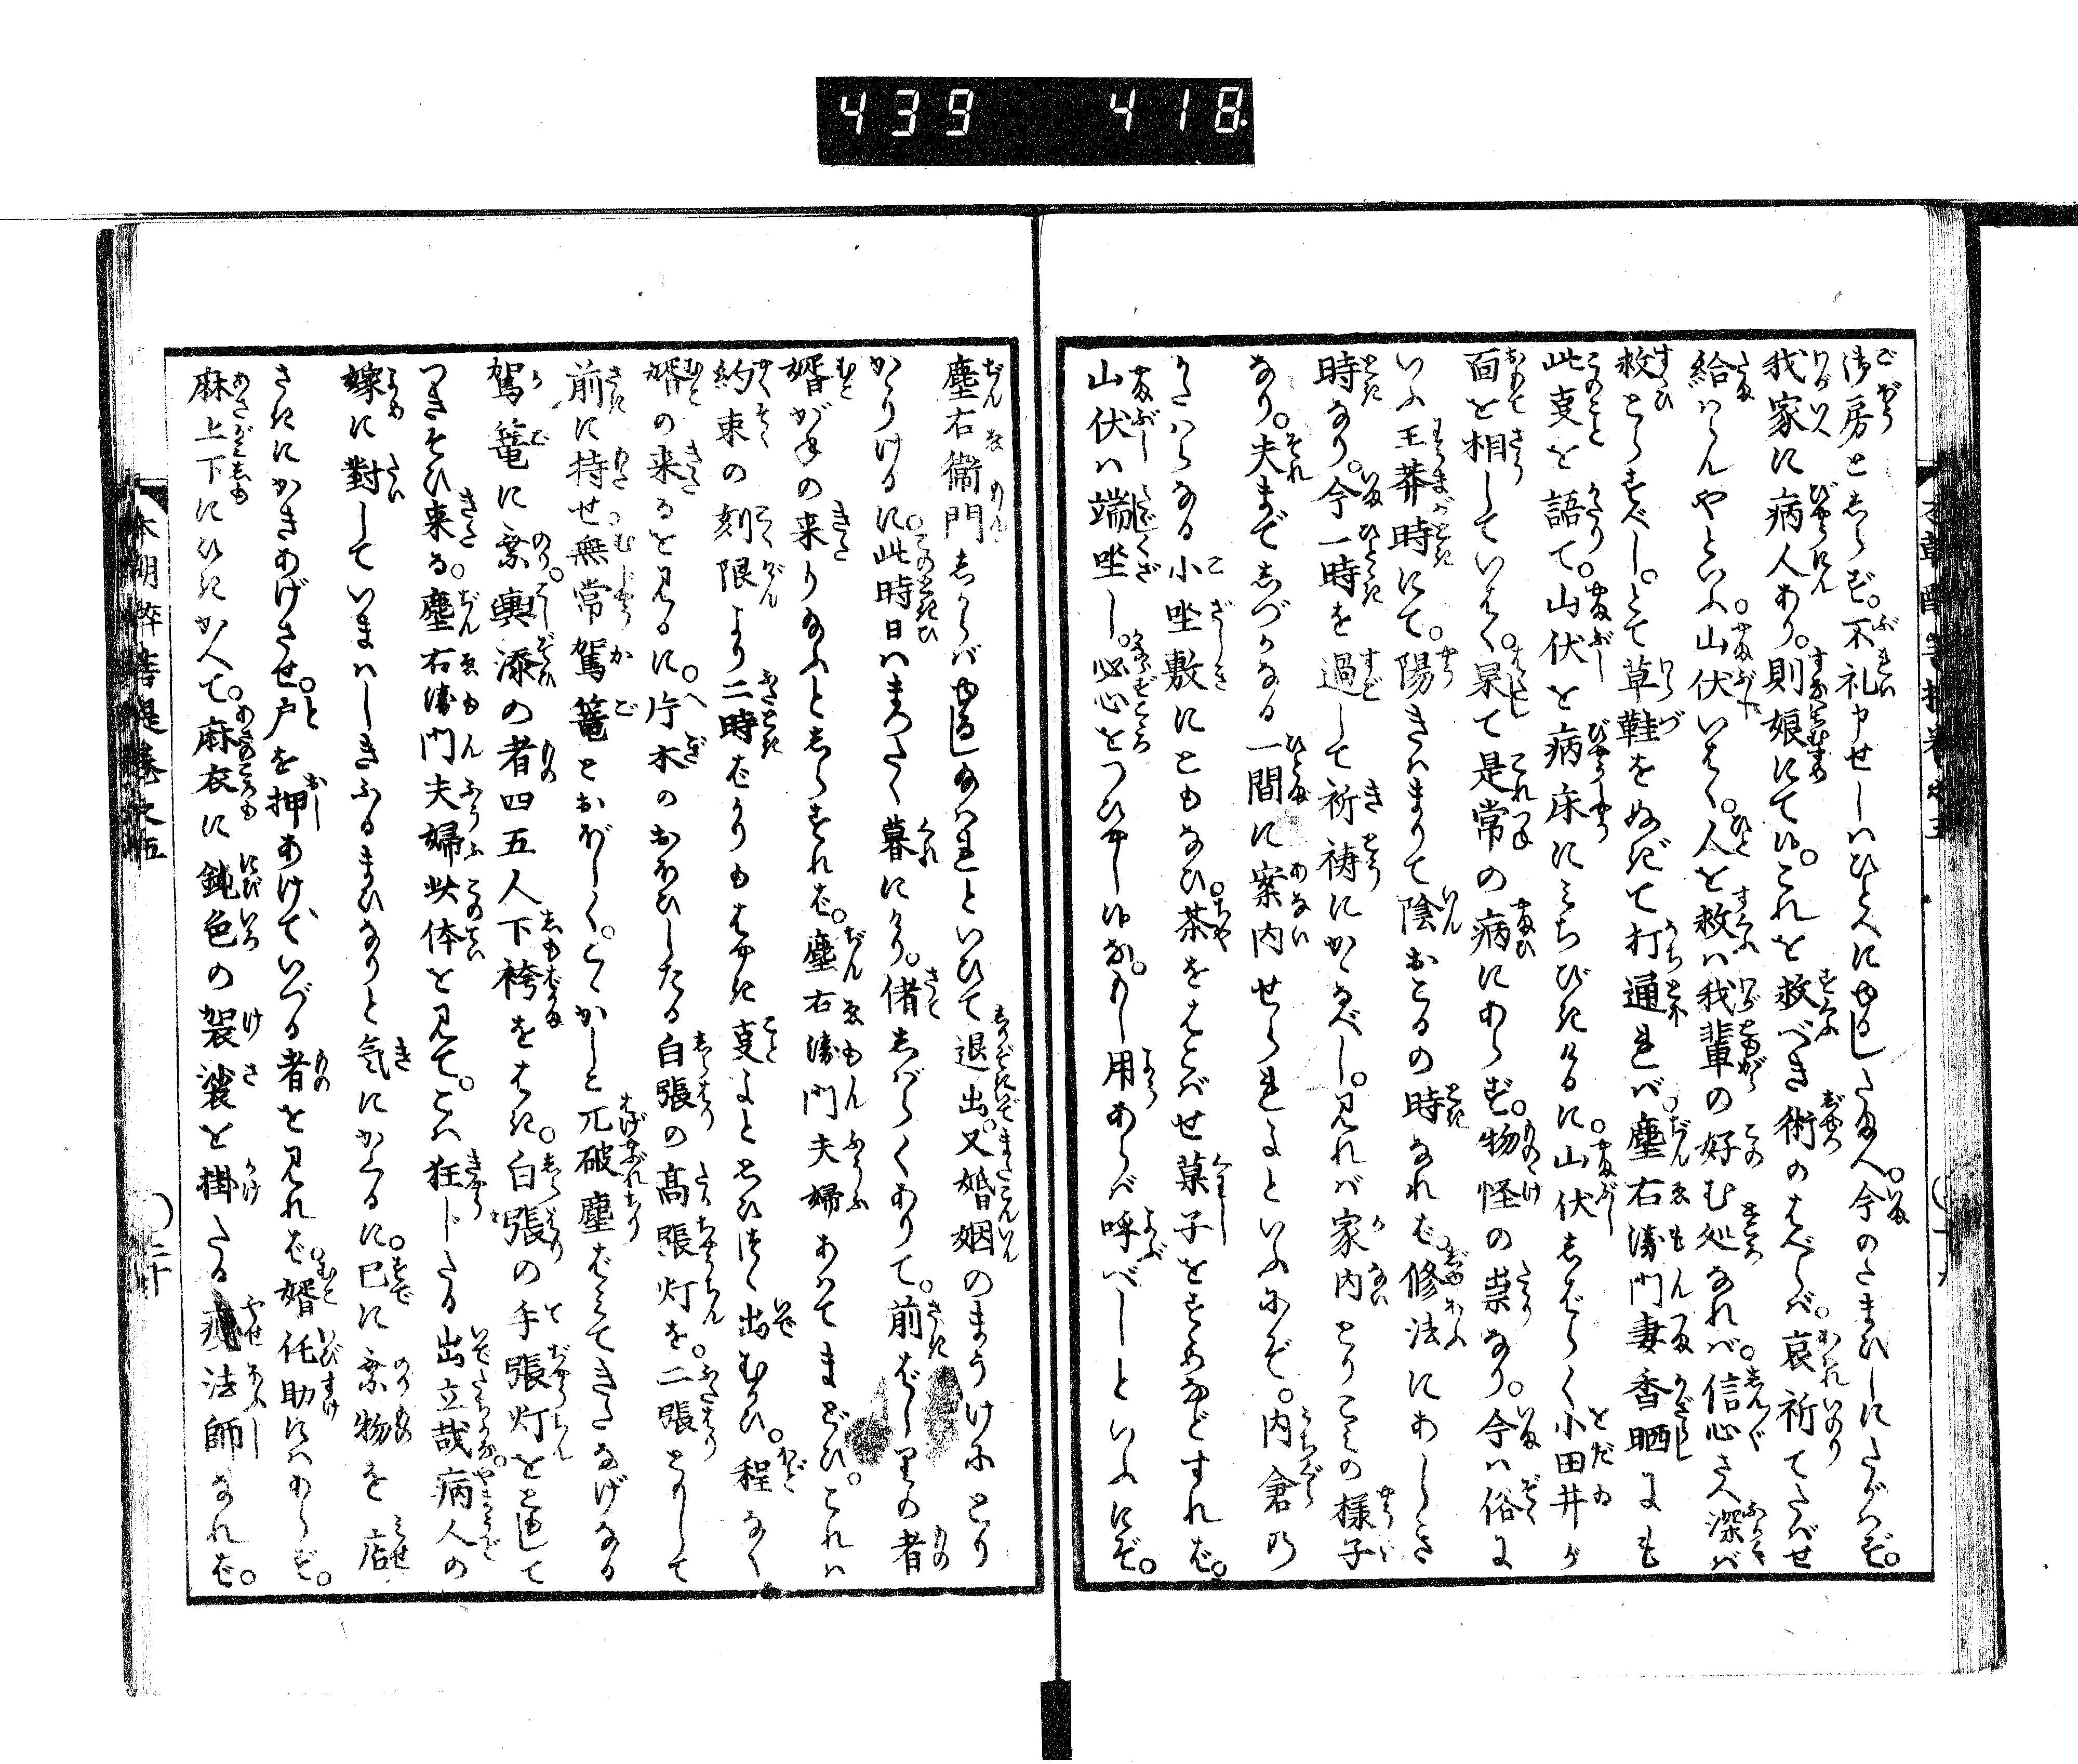 439 418
御房としらず。不礼申せしはひとへにゆるしたまへ。今のたまひしにたがはず。
我家に病人あり。則娘にて候。これを救べき術のあらば。哀祈てたばせ
給はらんやといふ。山伏いはく。人を救は我輩の好む処なれば。信心さへ深ば
救とらすべし。とて草鞋をぬぎて打通れば。塵右衛門妻香晒にも
此事を語て。山伏を病床にみちびきけるに。山伏しばらく小田井が
面を相していはく。果て是常の病にあらず。物怪の祟なり。今は俗に
いふ王莽時にて。陽きはまりて陰おこるの時なれば。修法にあしき
時なり。今一時を過して祈祷にかゝるべし。見れば家内とりこみの様子
なり。夫までしづかなる一間に案内せられよといふにぞ。内倉の
かたはらなる小坐敷にともなひ。茶をはこばせ菓子をすゝめなどすれば。
山伏は端坐し。必心をつひやし候な。もし用あらば呼べしといふにぞ。
塵右衛門しからばゆるし給はれといひて退出。又婚姻のまうけにとり
かゝりけるに。此時日はまつたく暮にけり。偖しばらくありて。前ばしりの者
婿がねの来り給ふとしらすれば。塵右衛門夫婦あはてまどひ。これは
約束の刻限より二時ばかりもはやき事よと思ひつゝ出むかひ。程なく
婿の来るを見るに。片木のおほひしたる白張の高張灯を。二張ともして
前に持せ無常駕篭とおぼしく。こゝかしこ兀破塵ばみてきたなげなる
駕篭に乗輿添の者四五人下袴をはき。白張の手張灯をともして
つきそひ来る。塵右衛門夫婦此体を見て。こは狂じたる出立哉病人の
嫁に對していまはしきふるまひなりと気にかくるに。已に乗物を店
さきにかきあげさせ。戸を押あけていづる者を見れば。婿侘助にはあらず。
麻上下にひきかへて。麻衣に鈍色の袈裟を掛たる痩法師なれば。
本朝酔菩提巻之五
二十